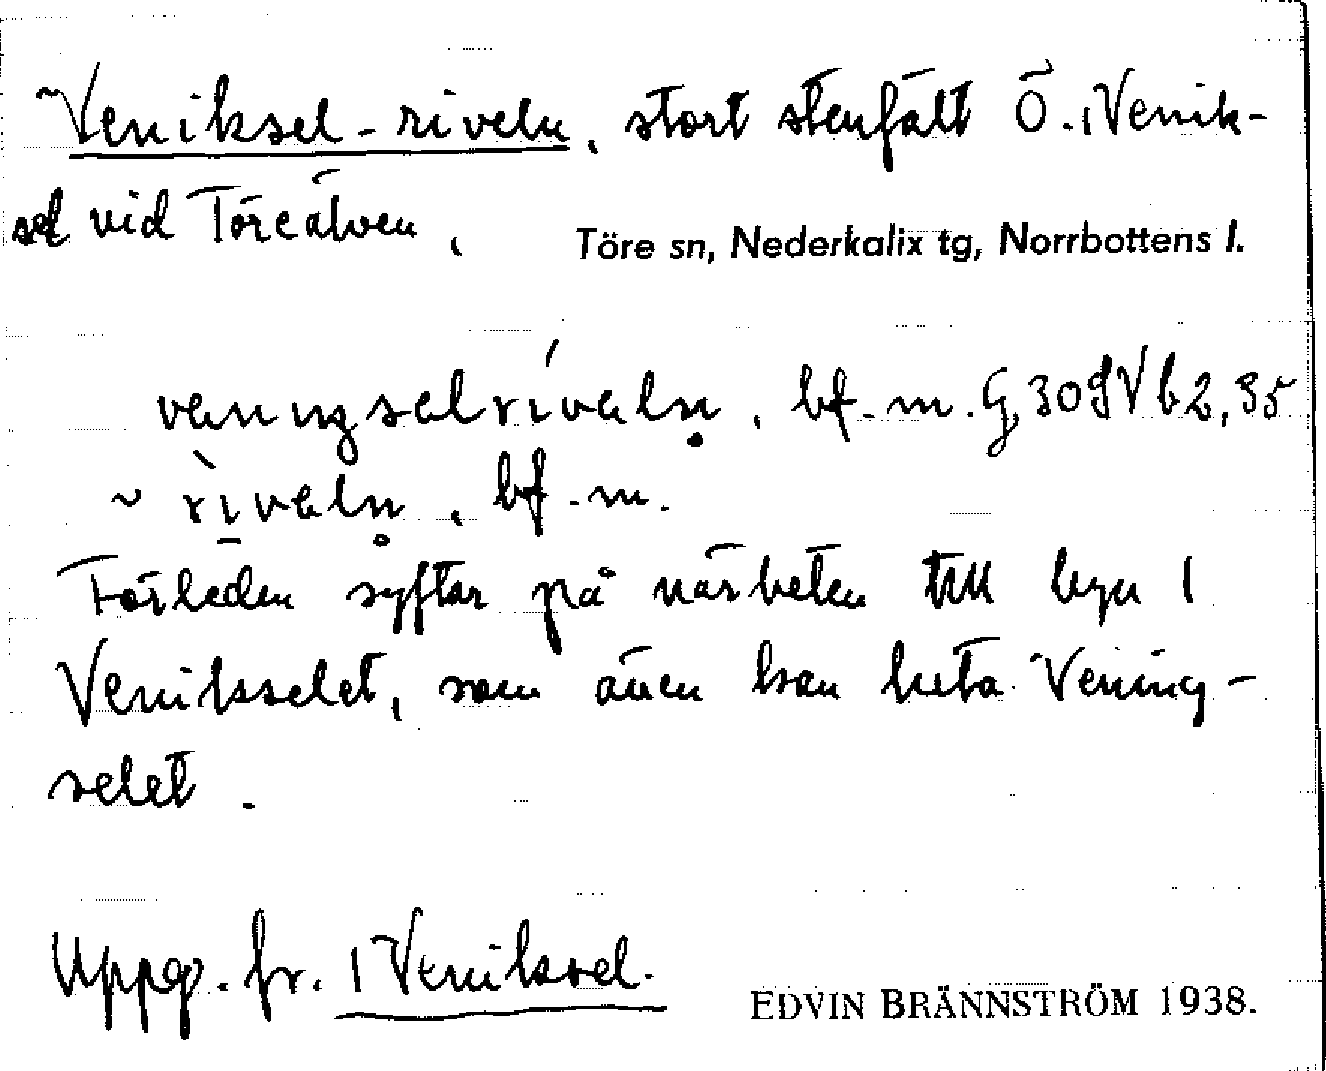 Veniksel-riveln, stort stenfält Ö. 1 Venik-
sel vid Töreälven,
Töre sn, Nederkalix tg, Norrbottens l.
bf. m.
~ rìveln, bf. m.
Förleden syftar på närheten till byn 1
Venikselet, som även kan heta Vening-
selet.
Uppg. fr. 1 Veniksel.
EDVIN BRÄNNSTRÖM 1938.